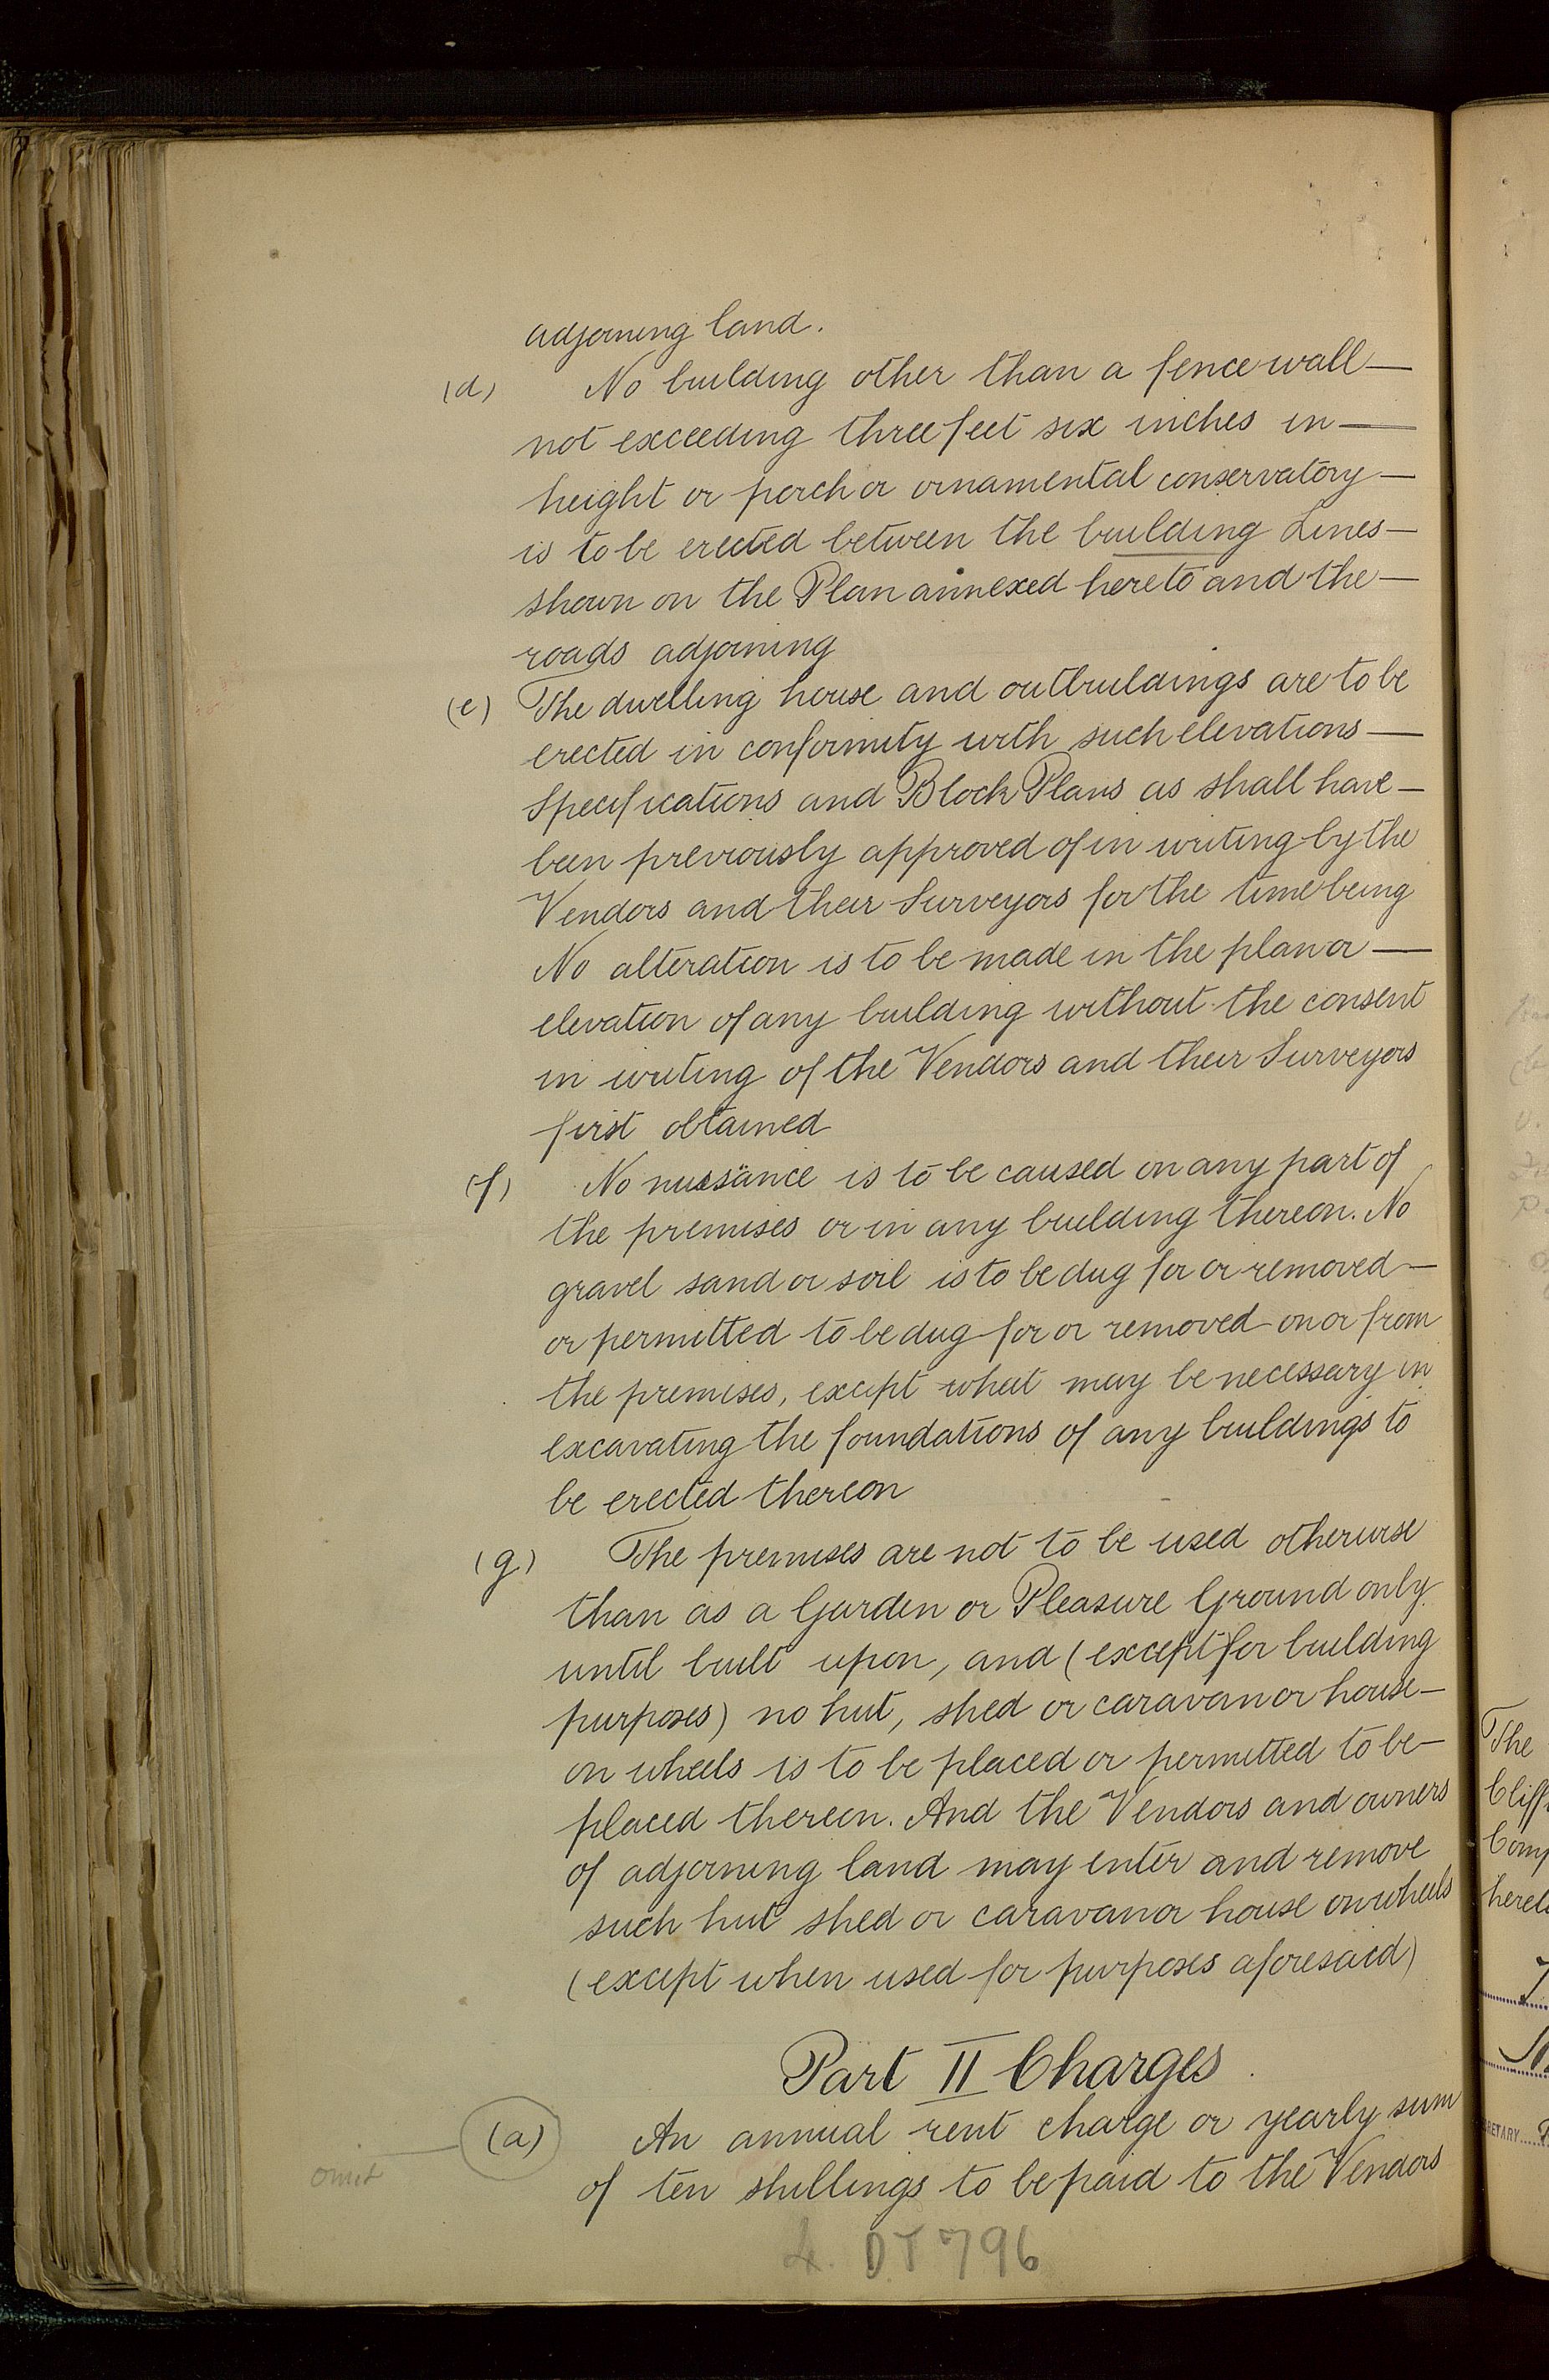 adjoining land.
(d) No building other than a fence wall —
not exceeding three feet six inches in —
height or porch or ornamental conservatory —
is to be erected between the building Lines —
shown on the Plan annexed hereto and the —
roads adjoining
(e) The dwelling house and outbuildings are to be
erected in conformity with such elevations —
Specifications and Block Plans as shall have —
been previously approved of in writing by the
Vendors and their Surveyors for the time being
No alteration is to be made in the plan or —
elevation of any building without the consent
in writing of the Vendors and their Surveyors
first obtained
(f) No nuisance is to be caused on any part of
the premises or in any building thereon. No
gravel sand or soil is to be dug for or removed —
or permitted to be dug for or removed on or from
the premises, except what may be necessary in
excavating the foundations of any buildings to
be erected thereon
(g) The premises are not to be used otherwise
than as a Garden or Pleasure Ground only
until built upon, and (except for building
purposes) no hut, shed or caravan or house —
on wheels is to be placed or permitted to be —
placed thereon. And the Vendors and owners
of adjoining land may enter and remove
such hut shed or caravan or house on wheels
(except when used for purposes aforesaid)
Part II Charges
(a) An annual rent charge or yearly sum
omit
of ten shillings to be paid to the Vendors
DT 796
The
Cliff
Comp
RETARY